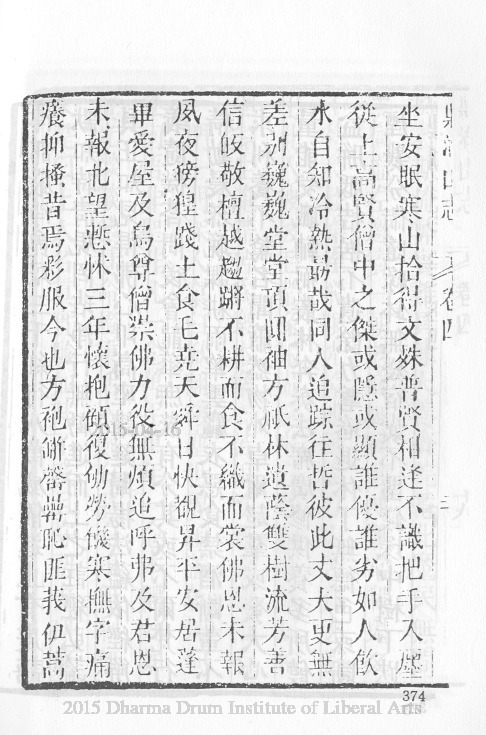 鼎湖山志 卷四
坐安眠寒山拾得文殊普賢相逢不識把手入廛
從上高賢僧中之傑或隱或顯誰優誰劣如人飲
水自知冷熱勗哉同人追踪往哲彼此丈夫更無
差別巍巍堂堂頂圓袖方祇林遺蔭雙樹流芳善
信皈敬檀越趨蹌不耕而食不織而裳佛恩未報
夙夜徬徨踐土食毛堯天舜日快覩昇平安居蓬
蓽愛屋及烏尊僧崇佛力役無煩追呼弗及君恩
未報北望悲怵三年懷抱顧復劬勞饑寒撫字痛
癢抑搔昔焉彩服今也方袍缾罄罍恥匪莪伊蒿
374
2015 Dharma Drum Institute of Liberal Arts